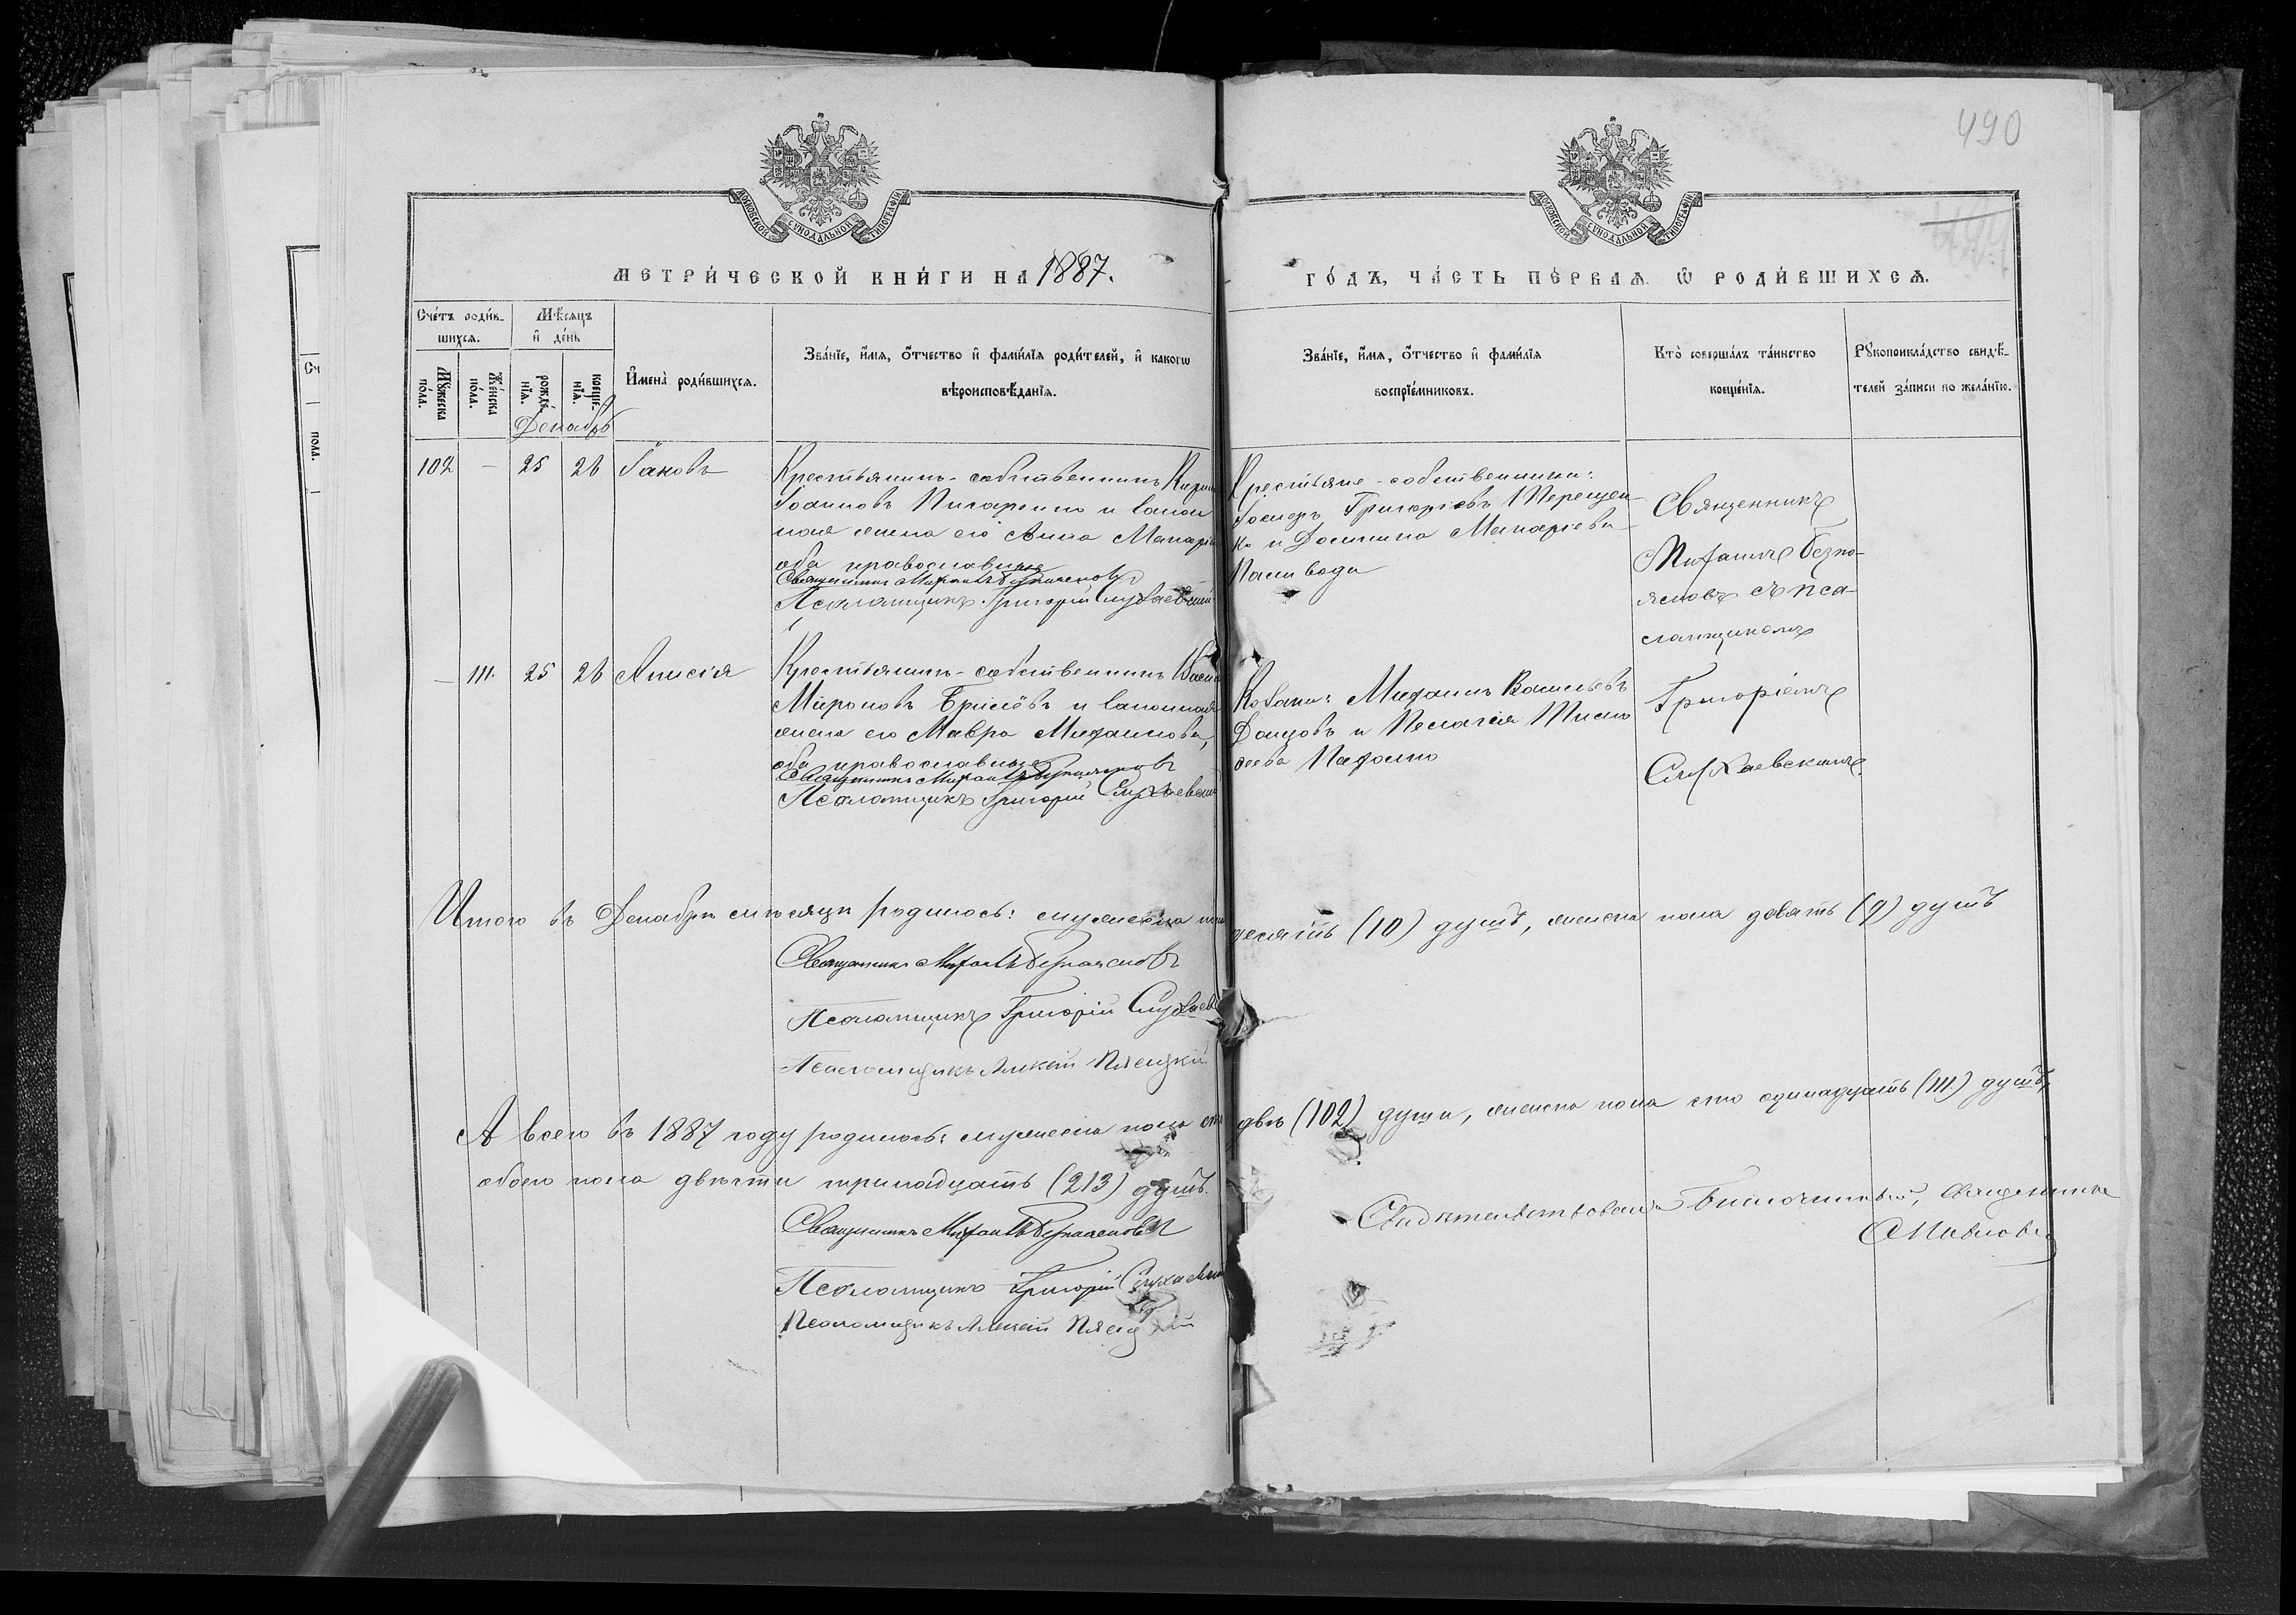 490
МОСКОВСКОЙ СѴНОДАЛЬНОЙ ТИПОГРАФІИ
МОСКОВСКОЙ СѴНОДАЛЬНОЙ ТИПОГРАФІИ
МЕТРИ́ЧЕСКОЙ КНИ́ГИ НА 1887.
ГО́ДЪ, ЧА́СТЬ ПЕ́РВАЯ Ѡ РОДИ́ВШИХСЯ.
Сче́тъ роди́в-
шихся.
Мѣ́сяцъ
и҆ де́нь
Му́жеска
по́ла.
Же́нска
по́ла.
рожде́-
нїя.
креще́-
нїя.
И҆мена̀ роди́вшихся.
Зва́нїе, и҆́мя, ѻ҆́тчество и҆ фами́лїя роди́телей, и҆ како́гѡ
вѣроисповѣ́данїя.
Зва́нїе, и҆́мя, ѻ҆́тчество и҆ фами́лїя
воспрїе́мниковъ.
Кто̀ соверша́лъ та́инство
креще́нїя.
Рꙋкоприкла́дство свидѣ́-
телей за́писи по жела́нїю.
Декабрь
102 – 25 26 Іаковъ
Крестьянинъ-собственникъ
Іоанновъ Писаренко и закон
ная жена его Анна Макарі
оба православные
Священникъ Михаилъ Безпоясновъ
Псаломщикъ Григорій Слухаевскій
Крестьяне-собственники:
Іосифъ Григоріевъ Терещен
ко и Домника Макаріева
Паливода
Священникъ
Михаилъ Безпо-
ясновъ съ пса-
ломщикомъ
– 111. 25 26 Анисія
Крестьянинъ-собственникъ
Мироновъ Брилёвъ и законная
жена его Мавра Михаилова,
оба православные
Священникъ Михаилъ Безпоясновъ
Псаломщикъ Григорій Слухаевскій
Козаки: Михаилъ Васильевъ
Донцовъ и Пелагія Тимо
ѳеева Пахомо
Григоріемъ
Слухаевскимъ.
Итого въ Декабрѣ мѣсяцѣ родилось: мужеска пола десять (10) душъ, женска пола девять (9) душъ
Священникъ Михаилъ Безпоясновъ
Псаломщикъ Григорій Слухаев
Псаломщикъ Алексій Пясецкій
А всего въ 1887 году родилось: мужеска пола сто двѣ (102) души, женска пола сто одинадцать (111) душъ,
обоего пола двѣсти тринадцать (213) душъ.
Священникъ Михаилъ Безпоясновъ
Псаломщикъ Григорій Слухаевскій
Псаломщикъ Алексій Пясецкій
Свидѣтельствовалъ Благочинный, священникъ